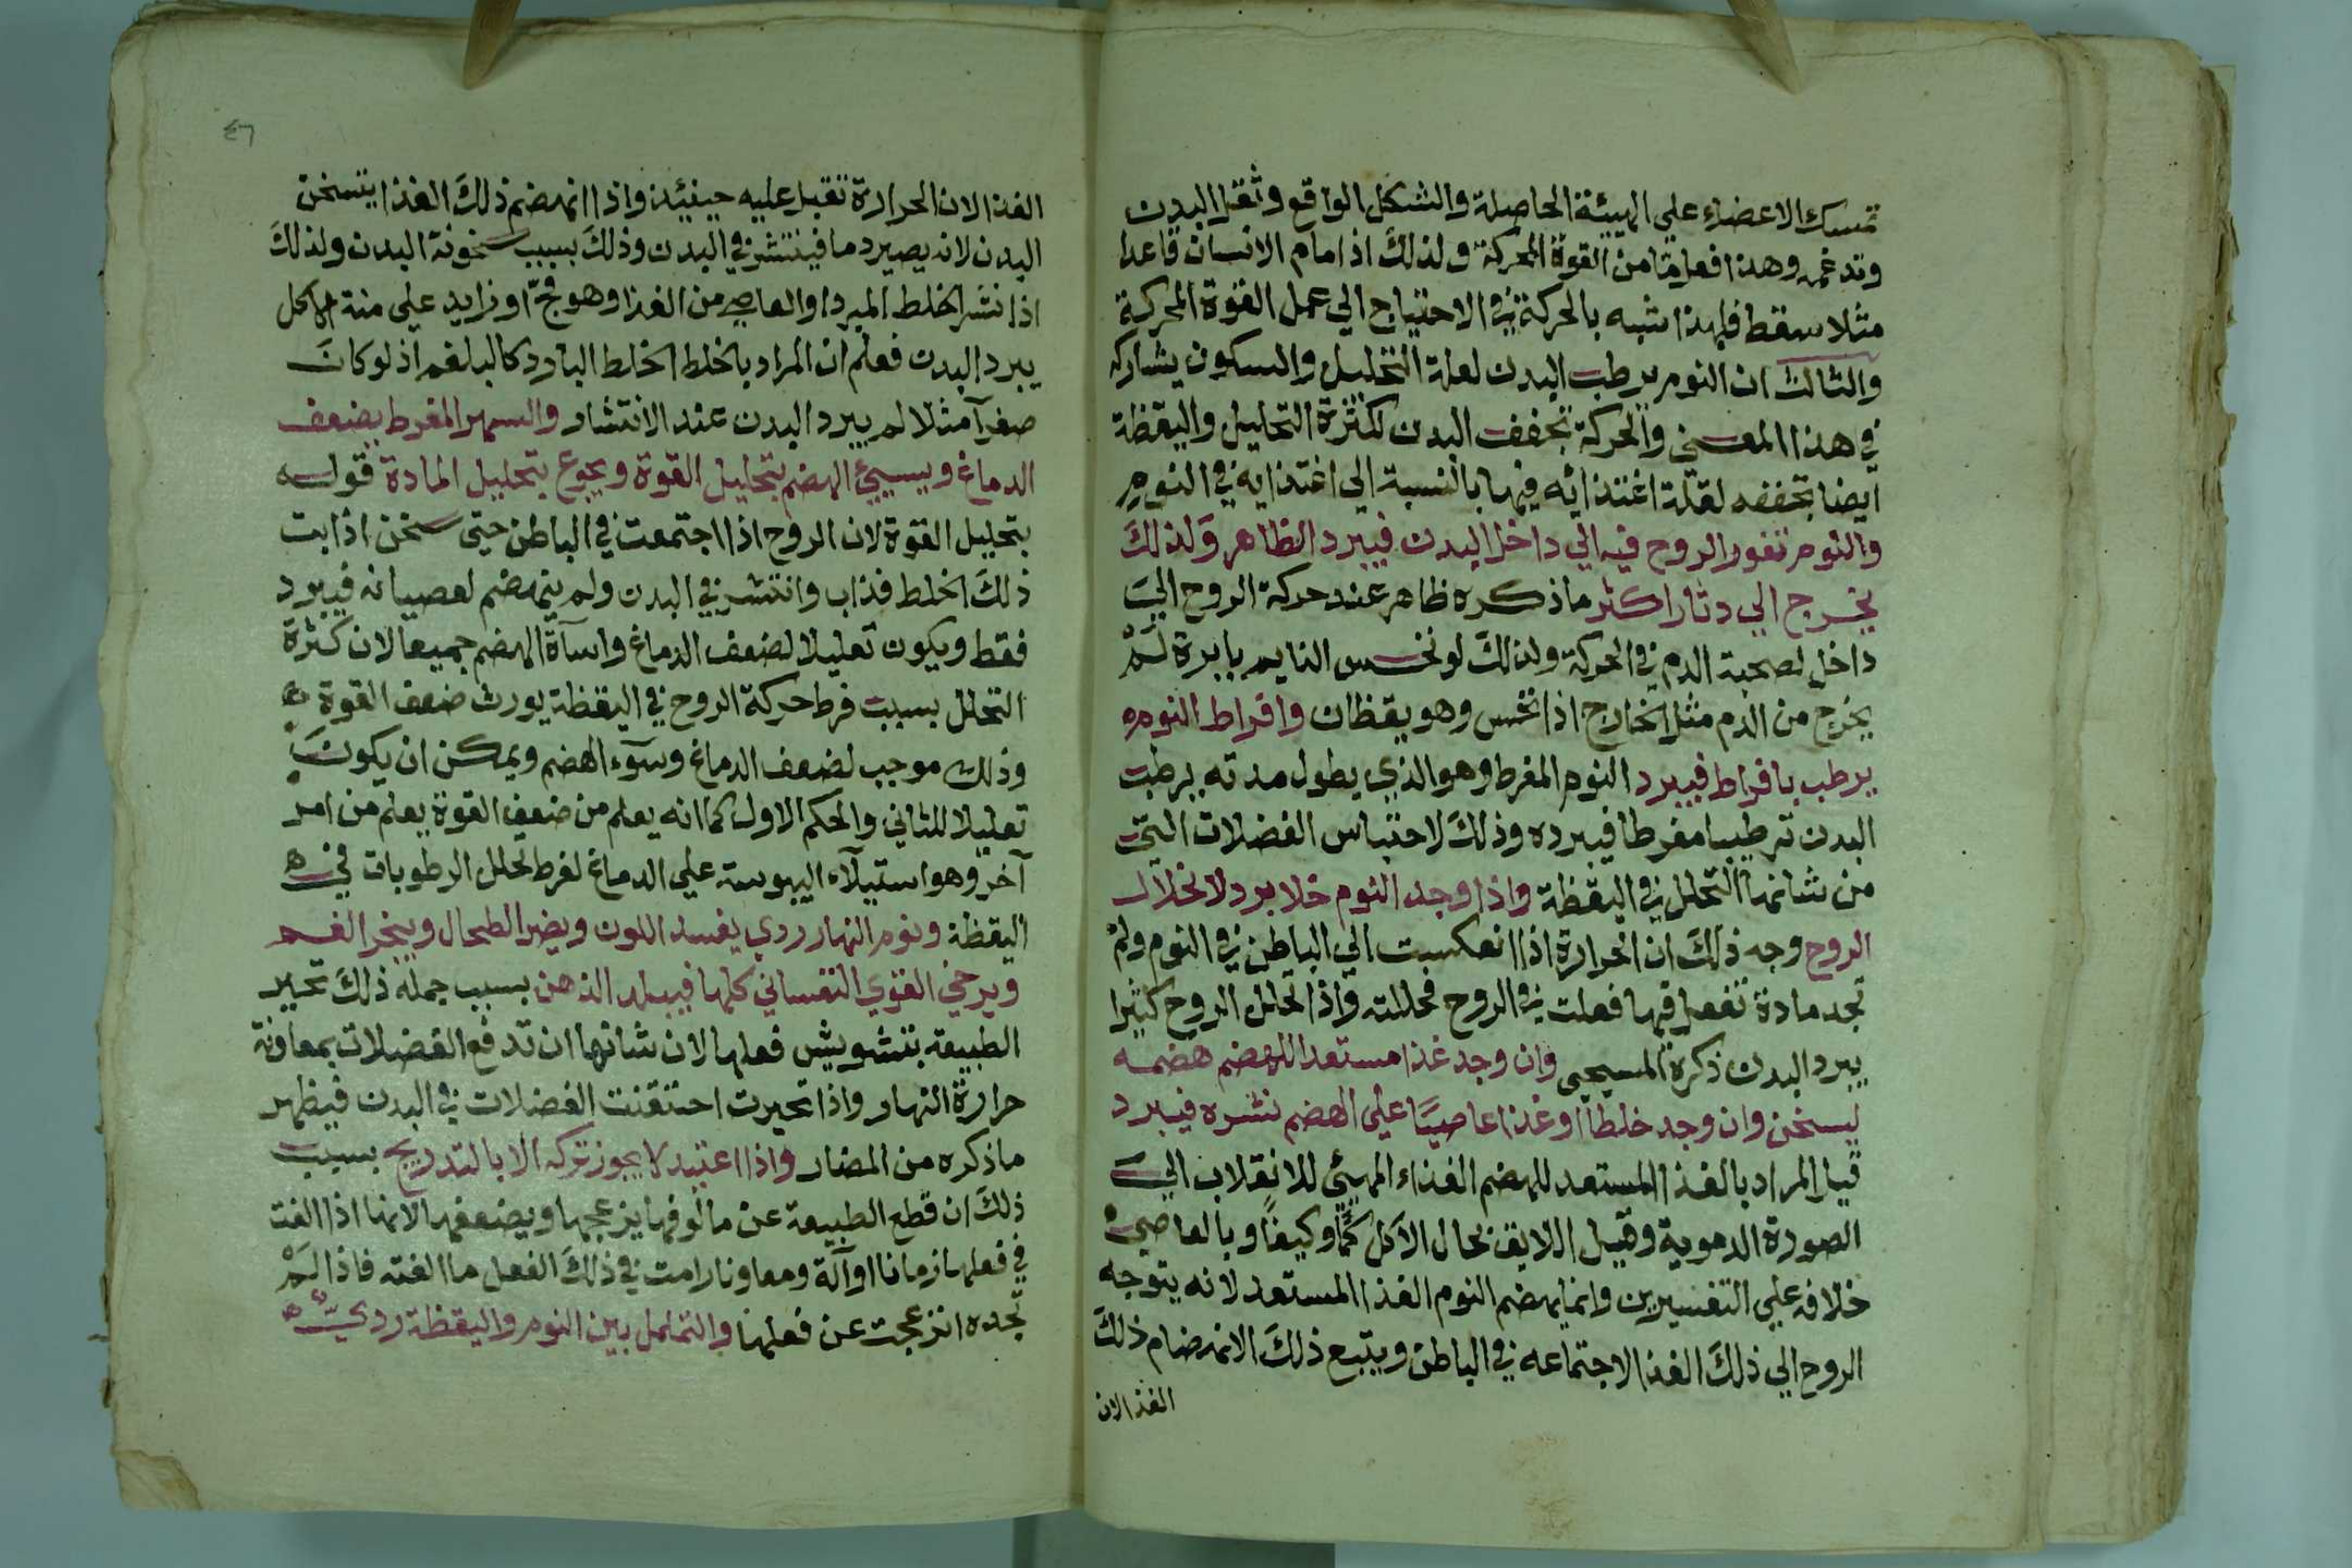 تمسك الاعضاء علي الهيئة الحاصلة والشكل الواقع وثقل البدن
وتدعمه وهذا فعل قامن القوة المحركة ولذلك اذا مام الانسان قاعدا
مثلا سقط فلهذا شبه بالحركة في الاحتياج الي عمل القوة المحركة
والثالث ان النوم يرطب البدن لعلة التحليل والسكون يشاركه
في هذا المعني والحركة تجفف البدن لكثرة التحليل واليقظة
ايضا تجففه لقلة اغتذائه فيها بالنسبة الي اغتذايه في النوم
والنوم تغور الروح فيه الي داخل البدن فيبرد الظاهر ولذلك
يخرج الي دثار اكثر ماذكره ظاهر عند حركة الروح الي
داخل لصحبة الدم في الحركة ولذلك لو نخس النايم بابرة لم
يخرج من الدم مثل الخارج اذا نخس وهو يقظان وافراط النوم
يرطب بافراط فيبرد النوم المفرط وهو الذي يطول مدته يرطب
البدن ترطيبا مفرطا فيبرده وذلك لاحتباس الفضلات التي
من شانها التحلل في اليقظة واذا وجد النوم خلا برد لانخلال
الروح وجه ذلك ان الحرارة اذا انعكست الي الباطن في النوم ولم
تجد مادة تفعل فيها فعلت في الروح فحللته واذا تحلل الروح كثيرا
يبرد البدن ذكره المسيحي وان وجد غذا مستعدا للهضم هضمه
ليسخن وان وجد خلطا او غذا عاصيا علي الهضم نشره فيبرد
قيل المراد بالغذا المستعد للهضم الغذاء المهيئ للانقلاب الي
الصورة الدموية وقيل اللايق بحال الآكل كما وكيفا وبالعاصي
خلافه علي التفسيرين وانما يهضم النوم الغذا المستعد لانه يتوجه
الروح الي ذلك الغذا لاجتماعه في الباطن ويتبع ذلك الانهضام ذلك
الغذا لان
٤٦
الغذا لان الحرارة تقبل عليه حينئذ واذا انهضم ذلك الغذا يتسخن
البدن لانه يصير دما فينتشر في البدن وذلك بسبب سخونة البدن ولذلك
اذا نشر الخلط المبرد او العاصي من الغذا وهو فج او زايد علي منة الاكل
يبرد البدن فعلم ان المراد بالخلط الخلط البارد كالبلغم اذ لو كان
صفرآ مثلا لم يبرد البدن عند الانتشار والسهر المفرط يضعف
الدماغ ويسيئ الهضم بتحليل القوة ويجوع بتحليل المادة قوله
بتحليل القوة لان الروح اذا اجتمعت في الباطن حتي سخن اذابت
ذلك الخلط فذاب وانتشر في البدن ولم ينهضم لعصيانه فيبرد
فقط ويكون تعليلا لضعف الدماغ واسآة الهضم جميعا لان كثرة
التحلل بسبب فرط حركة الروح في اليقظة يورث ضعف القوة
وذلك موجب لضعف الدماغ وسوء الهضم ويمكن ان يكون
تعليلا للثاني والحكم الاول كما انه يعلم من ضعف القوة يعلم من امر
آخر وهو استيلآء اليبوسة علي الدماغ لفرط تحلل الرطوبات في
اليقظة ونوم النهار ردي يفسد اللون ويضر الطحال ويبخر الفم
ويرخي القوي النفساني كلها فيبلد الذهن بسبب جملة ذلك تحير
الطبيعة بتشويش فعلها لان شانها ان تدفع الفضلات بمعاونة
حرارة النهار واذا تحيرت احتقنت الفضلات في البدن فيظهر
ماذكره من المضار واذا اعتيد لا يجوز تركه الا بالتدريج بسبب
ذلك ان قطع الطبيعة عن مالوفها يزعجها ويضعفها لانها اذا الفت
في فعلها زمانا او آلة ومعاونا رامت في ذلك الفعل ما الفته فاذا لم
تجده انزعجت عن فعلها والتململ بين النوم واليقظة ردي